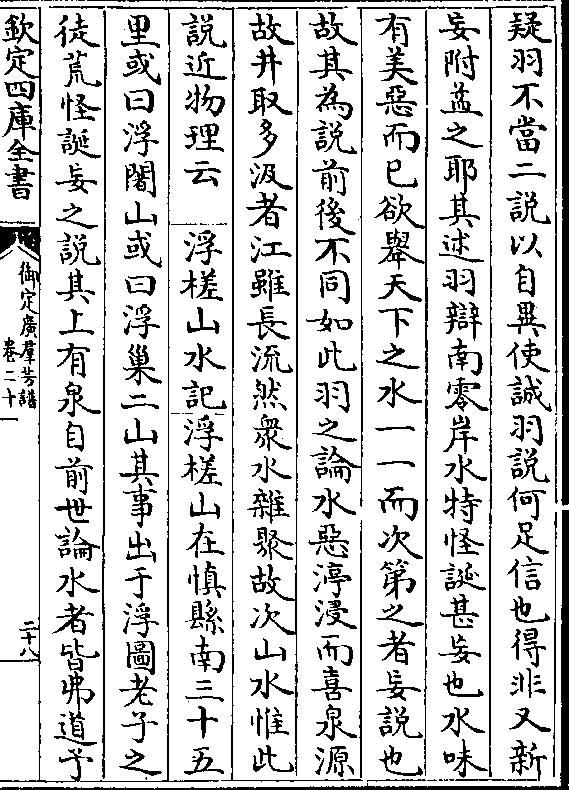 疑羽不當二説以自異使誠羽説何足信也得非又新
妄附益之耶其述羽辯南零岸水特怪誕甚妄也水味
有美惡而已欲舉天下之水一一而次第之者妄説也
故其為説前後不同如此羽之論水惡渟浸而喜泉源
故井取多汲者江雖長流然衆水雜聚故次山水惟此
説近物理云　浮槎山水記浮槎山在慎縣南三十五
里或曰浮闍山或曰浮巢二山其事出于浮圖老子之
徒荒怪誕妄之説其上有泉自前世論水者皆弗道予
欽定四庫全書　御定廣羣芳譜 卷二十　二十八